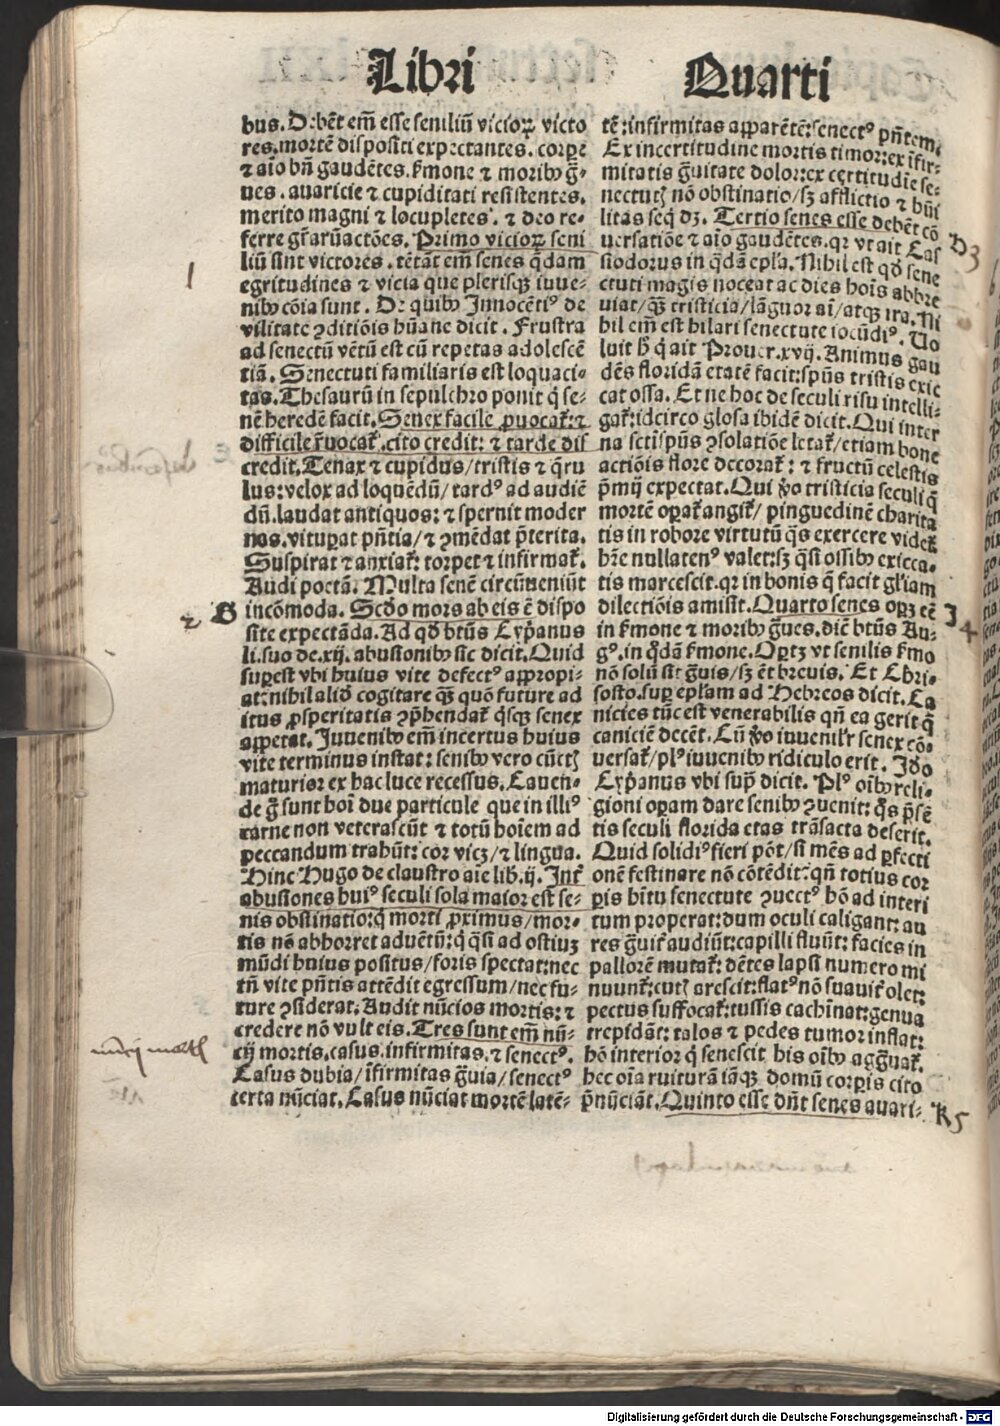 Libri Quarti
bus. Debēt em̄ esse seniliū vicioꝝ victo
res. mortē dispositi expectantes. corꝑe
⁊ aīo bn̄ gaudētes. ẜmone ⁊ moribꝰ g̃-
ues. auaricie ⁊ cupiditati resistentes.
merito magni ⁊ locupletes. ⁊ deo re-
ferre gr̄aꝝ actōes. Primo vicioꝝ seni
liū sint victores. tētāt em̄ senes q̄dam
egritudines ⁊ vicia que plerisqꝫ iuue-
nibꝰ cōia sunt. De quibꝰ Innocētiꝰ de
vilitate ꝯditiōis hūane dicit. Frustra
ad senectū vētū est cū repetas adolescē
tiā. Senectuti familiaris est loquaci-
tas. Thesaurū in sepulchro ponit q̇ se-
nē heredē facit. Senex facile ꝓuocat᷑: ⁊
difficile r̄uocat᷑. cito credit: ⁊ tarde dis
credit. Tenax ⁊ cupidus/ tristis ⁊ q̄ru
lus: velox ad loquēdū/ tardꝰ ad audiē
dū. laudat antiquos: ⁊ spernit moder
nos. vituꝑat pn̄tia/ ⁊ ꝯmēdat p̄terita.
Suspirat ⁊ anxiat᷑: torpet ⁊ infirmat᷑.
Audi poetā. Multa senē circūueniūt
2 G incōmoda. Scḋo mors ab eis ē dispo
site expectāda. Ad qd̓ btūs Cyp̄anus
li. suo de .xij. abusionibꝰ sic dicit. Quid
suꝑest vbi huius vite defectꝰ appropi-
at: nihil aliḋ cogitare qꝫ̄ quō future ad
itus ꝓsperitatis ꝯp̄hendat᷑ q̇sqꝫ senex
appetat. Iuuenibꝰ em̄ incertus huius
vite terminus instat: senibꝰ vero cūctꝭ
maturior ex hac luce recessus. Cauen-
de g̊ sunt hoī due particule que in illiꝰ
carne non veterascūt ⁊ totū hoīem ad
peccandum trahūt: cor vicꝫ/ ⁊ lingua.
Hinc Hugo de claustro aīe lib. ij. Int᷑
abusiones huiꝰ seculi sola maior est se-
nis obstinatio: q̇ morti ꝓximus/ mor-
tis nō abhorret aduētū: q̇ q̄si ad ostiuꝫ
mūdi huius positus/ foris spectat: nec
tn̄ vite pn̄tis attēdit egressum/ nec fu-
ture ꝯsiderat. Audit nūcios mortis: ⁊
credere nō vult eis. Tres sunt em̄ nū-
cij mortis. casus. infirmitas. ⁊ senectꝰ.
Casus dubia/ īfirmitas g̃uia/ senectꝰ
certa nūciat. Casus nūciat mortē latē-
tē: infirmitas apparētē: senectꝰ pn̄tem.
Ex incertitudine mortis timor: ex īfir-
mitatis g̃uitate dolor: ex certitudīe se-
nectutꝭ nō obstinatio/ sꝫ afflictio ⁊ hūi
litas seq̇ dꝫ. Tertio senes esse debēt cō H3
uersatiōe ⁊ aīo gaudētes. qꝛ vt ait Cas
siodorus in q̇dā epl̄a. Nihil est qd̓ sene
ctuti magis noceat ac dies hoīs abbre
uiat/ qꝫ̄ tristicia/ lāguor aī/ atqꝫ ira. Ni
hil em̄ est hilari senectute iocūdiꝰ. Uo
luit h̄ q̇ ait Prouer. xvij. Animus gau
dēs floridā etatē facit: spūs tristis exic
cat ossa. Et ne hoc de seculi risu intelli-
gat᷑: idcirco glosa ibidē dicit. Qui inter
na sctī spūs ꝯsolatiōe letat᷑/ etiam bone
actiōis flore decorat᷑: ⁊ fructū celestis
p̄mij expectat. Qui v̊o tristicia seculi q̄
mortē oꝑat᷑ angit᷑/ pinguedinē charita
tis in robore virtutū q̄s exercere videt᷑
h̄re nullatenꝰ valet: sꝫ q̄si ossibꝰ exicca-
tis marcescit. qꝛ in bonis q̄ facit gl̄iam
dilectiōis amisit. Quarto senes opꝫ eē I4
in ẜmone ⁊ moribꝰ g̃ues. dic̄ btūs Au-
gꝰ. in q̇dā ẜmone. Oꝑtꝫ vt senilis ẜmo
nō solū sit g̃uis/ sꝫ et breuis. Et Chri-
sosto. suꝑ epl̄am ad Hebreos dicit. Ca
nicies tūc est venerabilis qn̄ ea gerit q̄
caniciē decēt. Cū v̊o iuuenilr̄ senex cō-
uersat᷑/ plꝰ iuuenibꝰ ridiculo erit. Iḋo
Cyp̄anus vbi sup̄ dicit. Plꝰ oībꝰ reli-
gioni oꝑam dare senibꝰ ꝯuenit: q̄s p̄sē
tis seculi florida etas trāsacta deserit.
Quid solidiꝰ fieri pōt/ si mēs ad ꝑfecti
onē festinare nō cōtēdit: qn̄ totius cor
ꝑis hītu senectute ꝯuectꝰ hō ad interi
tum properat: dum oculi caligant: au
res g̃uit᷑ audiūt: capilli fluūt: facies in
pallorē mutat᷑: dētes lapsi numero mi
nuunt᷑: cutꝭ arescit: flatꝰ nō suauit᷑ olet:
pectus suffocat᷑: tussis cachīnat: genua
trepidāt: talos ⁊ pedes tumor inflat:
hō interior q̇ senescit his oībꝰ agg̃uat᷑.
hec oīa ruiturā iāqꝫ domū corꝑis cito
p̄nūciāt. Quinto esse dn̄t senes auari- K5
1
nuncij mortis
Digitalisierung gefördert durch die Deutsche Forschungsgemeinschaft - DFG